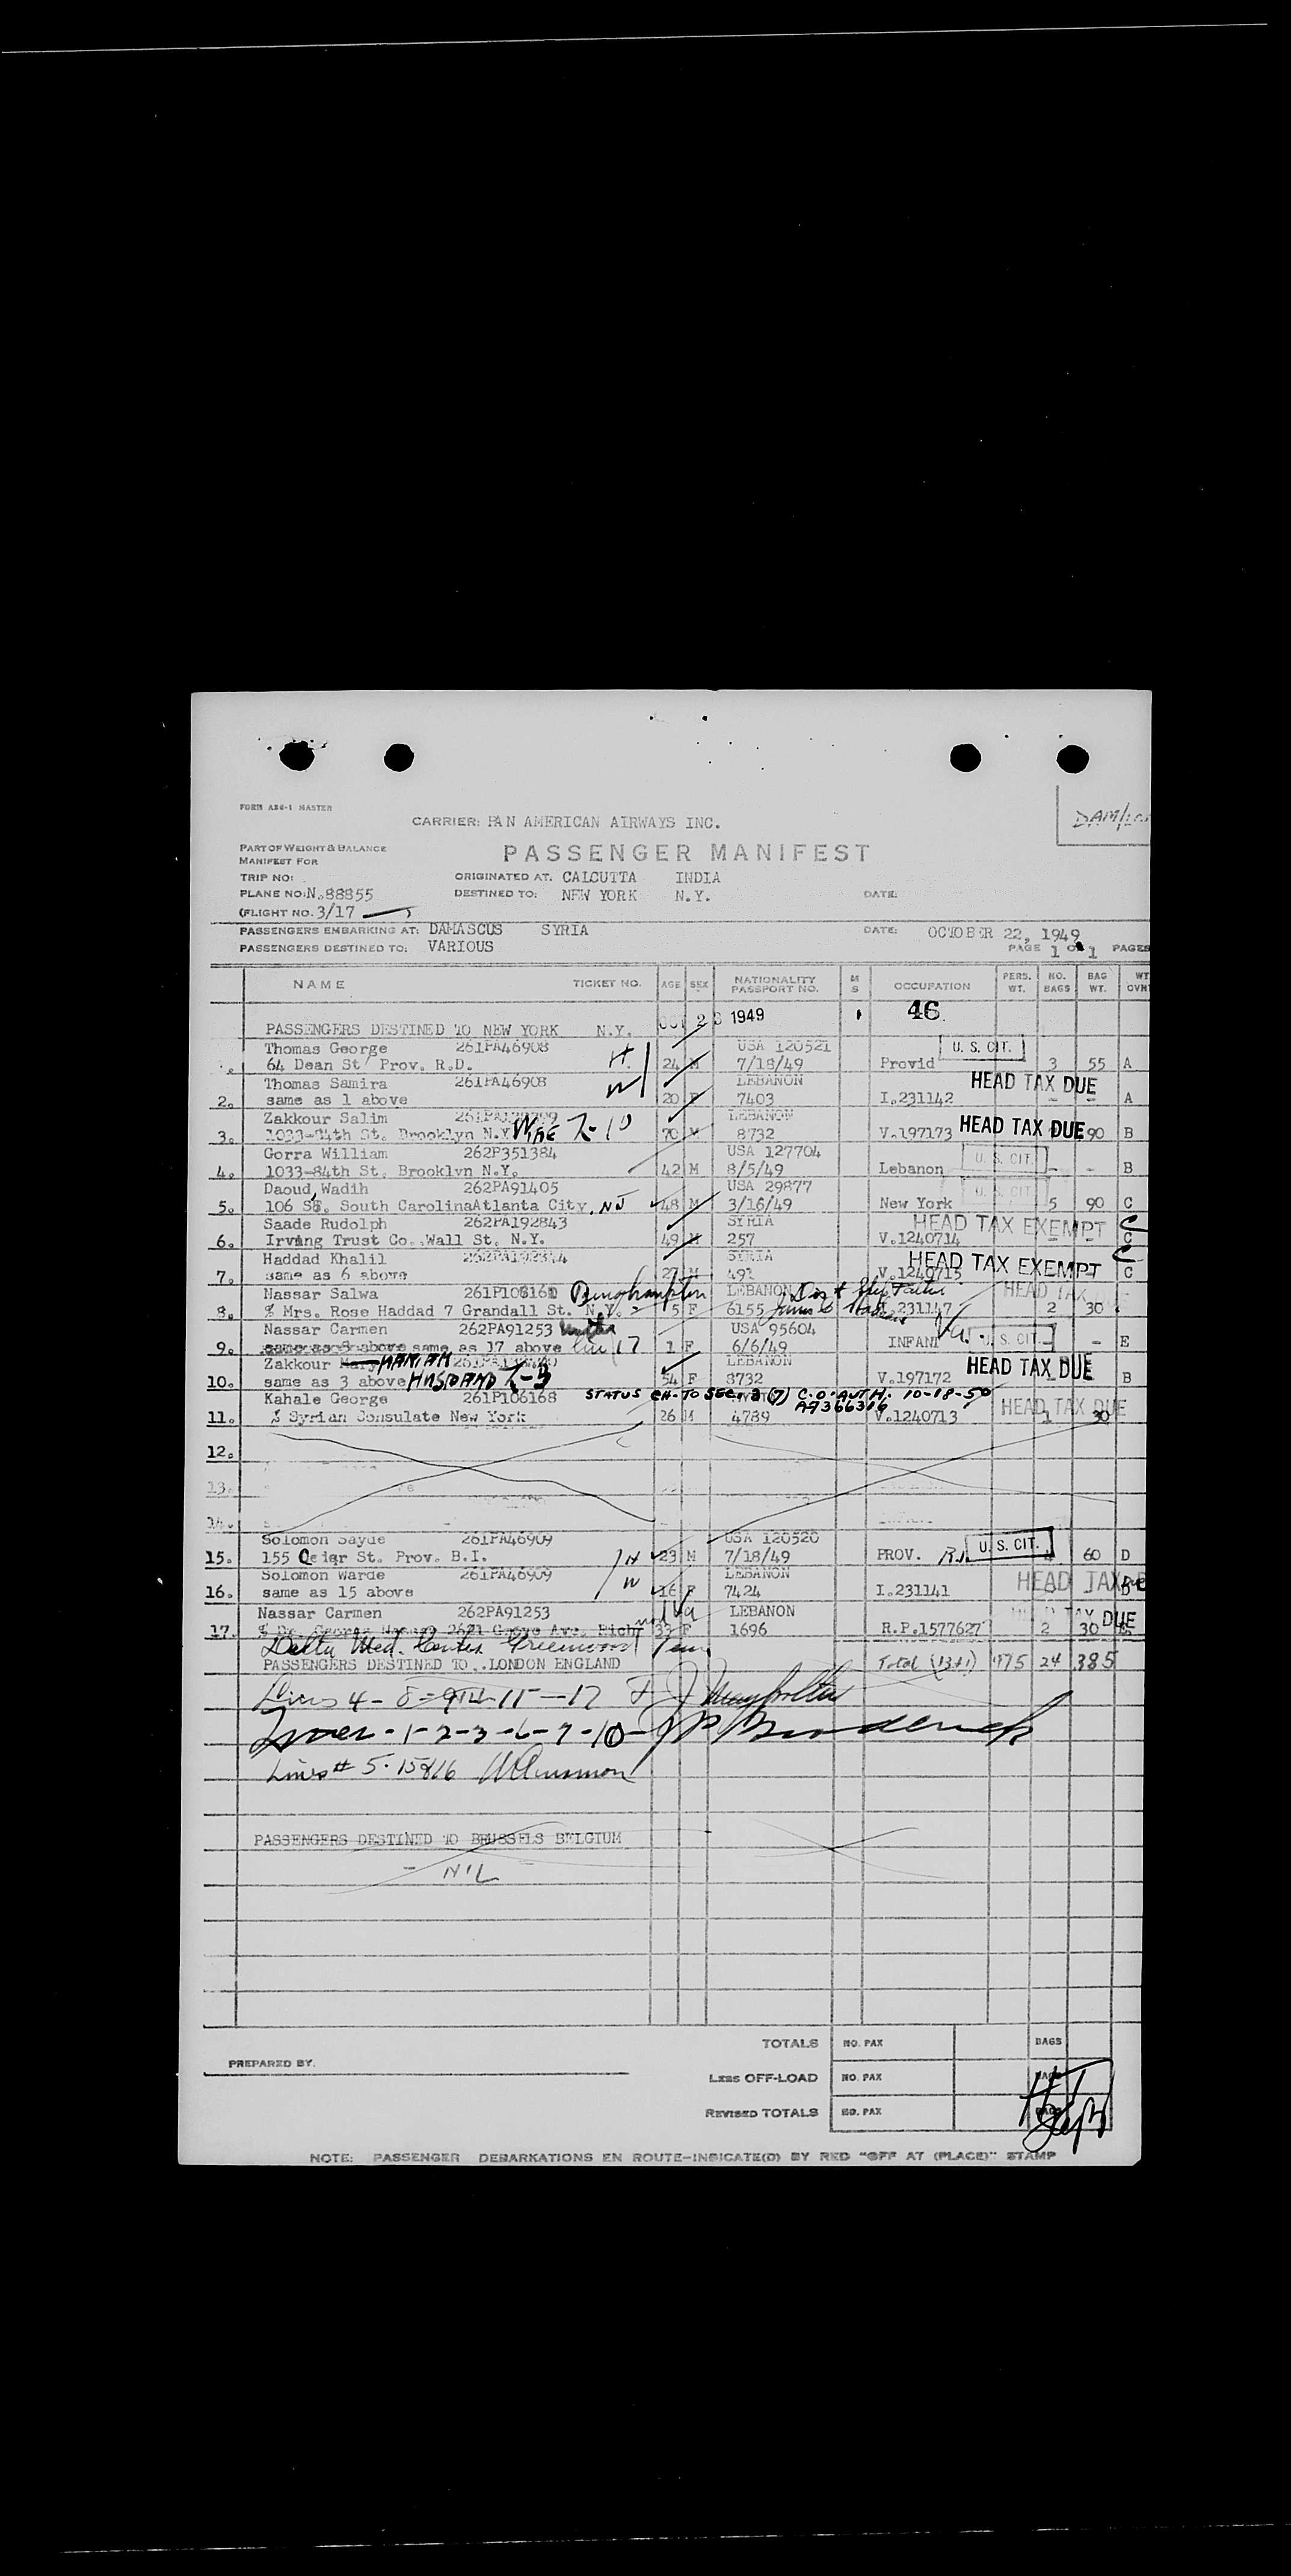 FORM AB6-1 MASTER
CARRIER: PAN AMERICAN AIRWAYS INC.
PART OF WEIGHT & BALANCE
MANIFEST FOR
PASSENGER MANIFEST
TRIP NO:
ORIGINATED AT. CALCUTTA INDIA
PLANE NO: N.88855
DESTINED TO: NEW YORK N.Y.
DATE:
(FLIGHT NO. 3/17
PASSENGERS EMBARKING AT: DAMASCUS SYRIA
DATE: OCTOBER 22, 1949
PASSENGERS DESTINED TO: VARIOUS
PAGE 1 OF 1 PAGES
NAME TICKET NO. AGE SEX NATIONALITY PASSPORT NO. M S OCCUPATION PERS. WT. NO. BAGS BAG WT.
PASSENGERS DESTINED TO NEW YORK N.Y. OCT 23 1949 46
Thomas George 261PA46908 H USA 120521 U. S. CIT.
64 Dean St Prov. R.D. 24 M 7/18/49 Provid 3 55 A
Thomas Samira 261PA46908 W LEBANON HEAD TAX DUE
2. same as 1 above 20 F 7403 I.231142 - - A
Zakkour Salim LEBANON
3. 1033-84th St. Brooklyn N.Y. WIFE L-10 70 M 8732 V.197173 HEAD TAX DUE 90 B
Gorra William 262P351384 USA 127704 U. S. CIT.
4. 1033-84th St. Brooklyn N.Y. 42 M 8/5/49 Lebanon - - B
Daoud, Wadih 262PA91405 USA 29877 U. S. CIT.
5. 106 St. South Carolina Atlanta City. NJ 48 M 3/16/49 New York 5 90 C
Saade Rudolph 262PA192843 SYRIA HEAD TAX EXEMPT C
6. Irving Trust Co. Wall St. N.Y. 49 M 257 V.1240714 - - C
Haddad Khalil SYRIA HEAD TAX EXEMPT C
7. same as 6 above 27 M 491 V.1240715 C
Nassar Salwa Binghampton LEBANON HEAD TAX DUE
8. % Mrs. Rose Haddad 7 Grandall St. N.Y. 5 F 6155 I.231147 2 30
Nassar Carmen 262PA91253 USA 95604
9. same as 8 above same as 17 above 17 1 F 6/6/49 INFANT U. S. CIT. - E
Zakkour Mary MARIAM LEBANON HEAD TAX DUE
10. same as 3 above HUSBAND L-3 54 F 8732 V.197172 B
Kahale George 261P106168 STATUS CH. TO SEC. 3 (7) C.O. AUTH. 10-18-50
A9366316
11. % Syrian Consulate New York 26 M 4789 V.1240713 HEAD TAX DUE 1 30
12.
13.
14.
Solomon Sayde 261PA46909 USA 120520
15. 155 St. Prov. B.I. H 23 M 7/18/49 PROV. R.I. U. S. CIT. 60 D
Solomon Warde 261PA46909 W LEBANON HEAD TAX DUE
16. same as 15 above 16 F 7424 I.231141 D
Nassar Carmen 262PA91253 LEBANON HEAD TAX DUE
17. % Dr. George Nassar 2621 Grove Ave. Richm 33 F 1696 R.P.1577627 2 30
Delta Med. Center Greenwood
PASSENGERS DESTINED TO LONDON ENGLAND Total (13+1) 975 24 385
Lines 4-8-9-11-17
Lines-1-2-3-6-7-10-
Lines # 5. 15&16
PASSENGERS DESTINED TO BRUSSELS BELGIUM
- NIL
TOTALS NO. PAX BAGS
PREPARED BY.
LESS OFF-LOAD NO. PAX BAGS
REVISED TOTALS NO. PAX BAGS
NOTE: PASSENGER DEBARKATIONS EN ROUTE-INDICATE(D) BY RED "OFF AT (PLACE)" STAMP